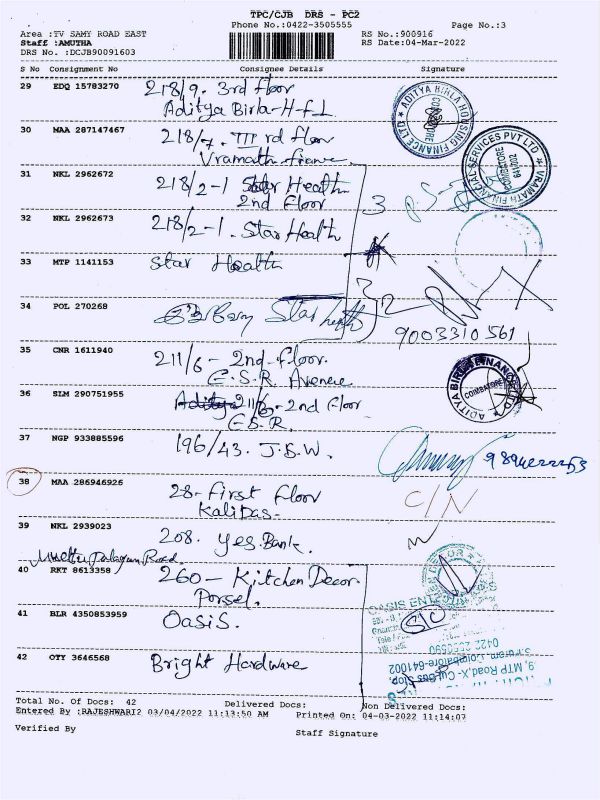 TPC/CJB DRS - PC2
Phone No.:0422-3505555
Page No.:3
Area :TV SAMY ROAD EAST
RS No.:900916
Staff :AMUTHA
RS Date:04-Mar-2022
DRS No. :DCJB90091603
S No Consignment No Consignee Details Signature
29 EDQ 15783270 218/9. 3rd floor
Aditya Birla-H-f-L
ADITYA BIRLA HOUSING FINANCE LTD
COIMBATORE
30 MAA 287147467 218/7. III rd floor
Vramath finance
VRAMATH FINANCIAL SERVICES PVT LTD
COIMBATORE
641002
31 NKL 2962672 218/2-1 Star Health
2nd Floor
3
32 NKL 2962673 218/2-1. Star Health
33 MTP 1141153 Star Health
34 POL 270268 Star health
9003310561
35 CNR 1611940 211/6 - 2nd floor.
E.S.R. Avenue
ADITYA BIRLA FINANCE LTD
COIMBATORE
36 SLM 290751955 211/6-2nd Floor
E.S.R.
37 NGP 933885596 196/43. J.S.W.
38 MAA 286946926 28-First Floor
Kalidas.
C/N
39 NKL 2939023 208. Yes Bank.
Road.
40 RKT 8613358 260 - Kitchen Decor
Porsel.
41 BLR 4350853959 Oasis.
OASIS ENTERPRISES
42 OTY 3646568 Bright Hardware
9, MTP Road,
Coimbatore-641002
Total No. Of Docs: 42 Delivered Docs: Non Delivered Docs:
Entered By :RAJESHWARI2 03/04/2022 11:13:50 AM Printed On: 04-03-2022 11:14:07
Verified By
Staff Signature